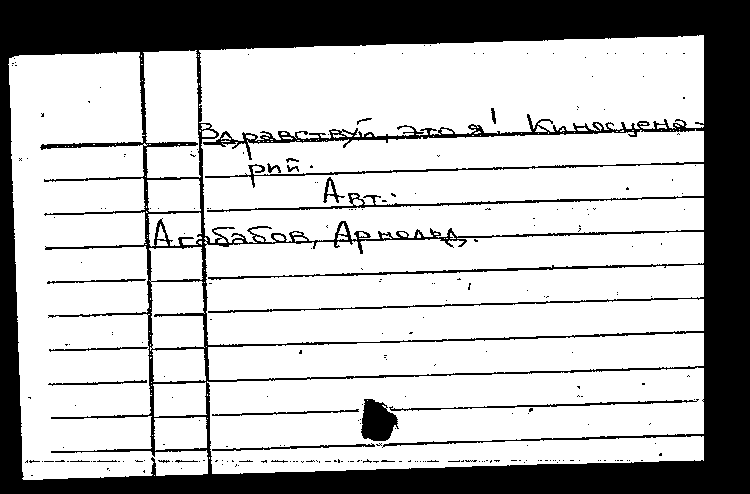 Здравствуй, это я! Киносцена-
рий.
Авт.:
Агабабов, Арнольд.